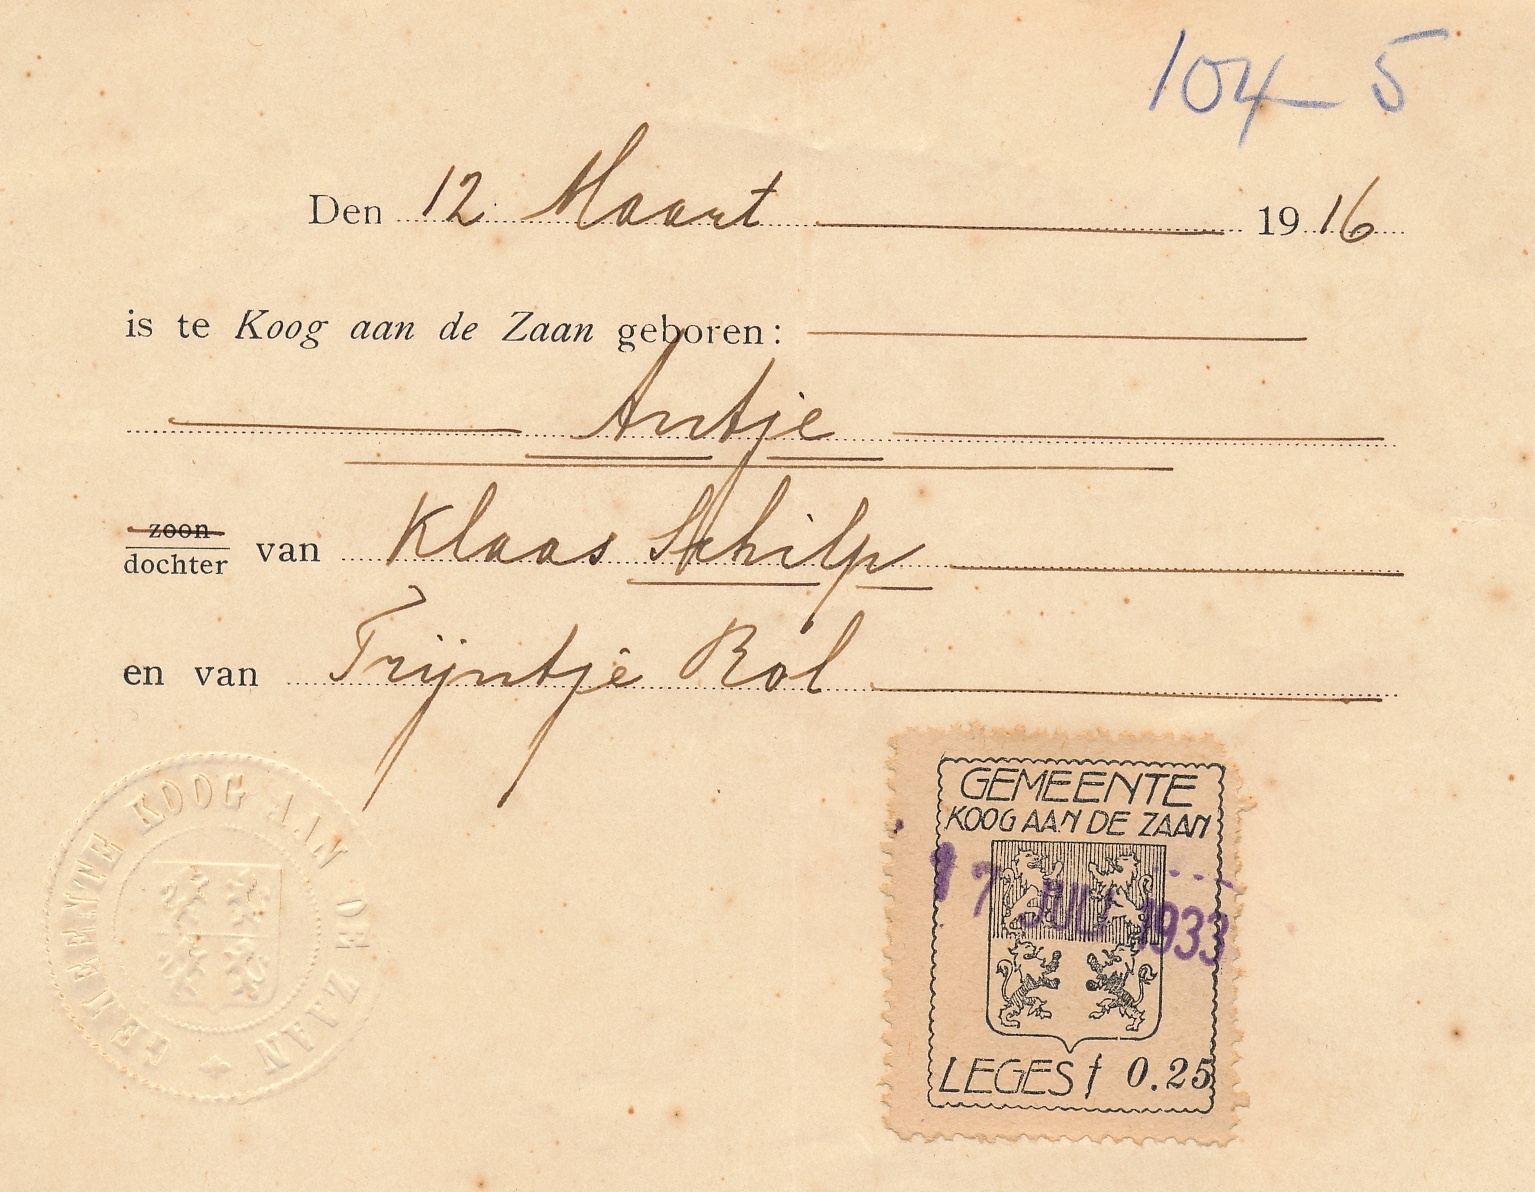 104-5
Den 12 Maart 1916
is te Koog aan de Zaan geboren:
Antje
zoon
dochter van Klaas Schilp
en van Trijntje Rol
GEMEENTE KOOG AAN DE ZAAN
GEMEENTE
KOOG AAN DE ZAAN
17 JULI 1933
LEGES f 0.25